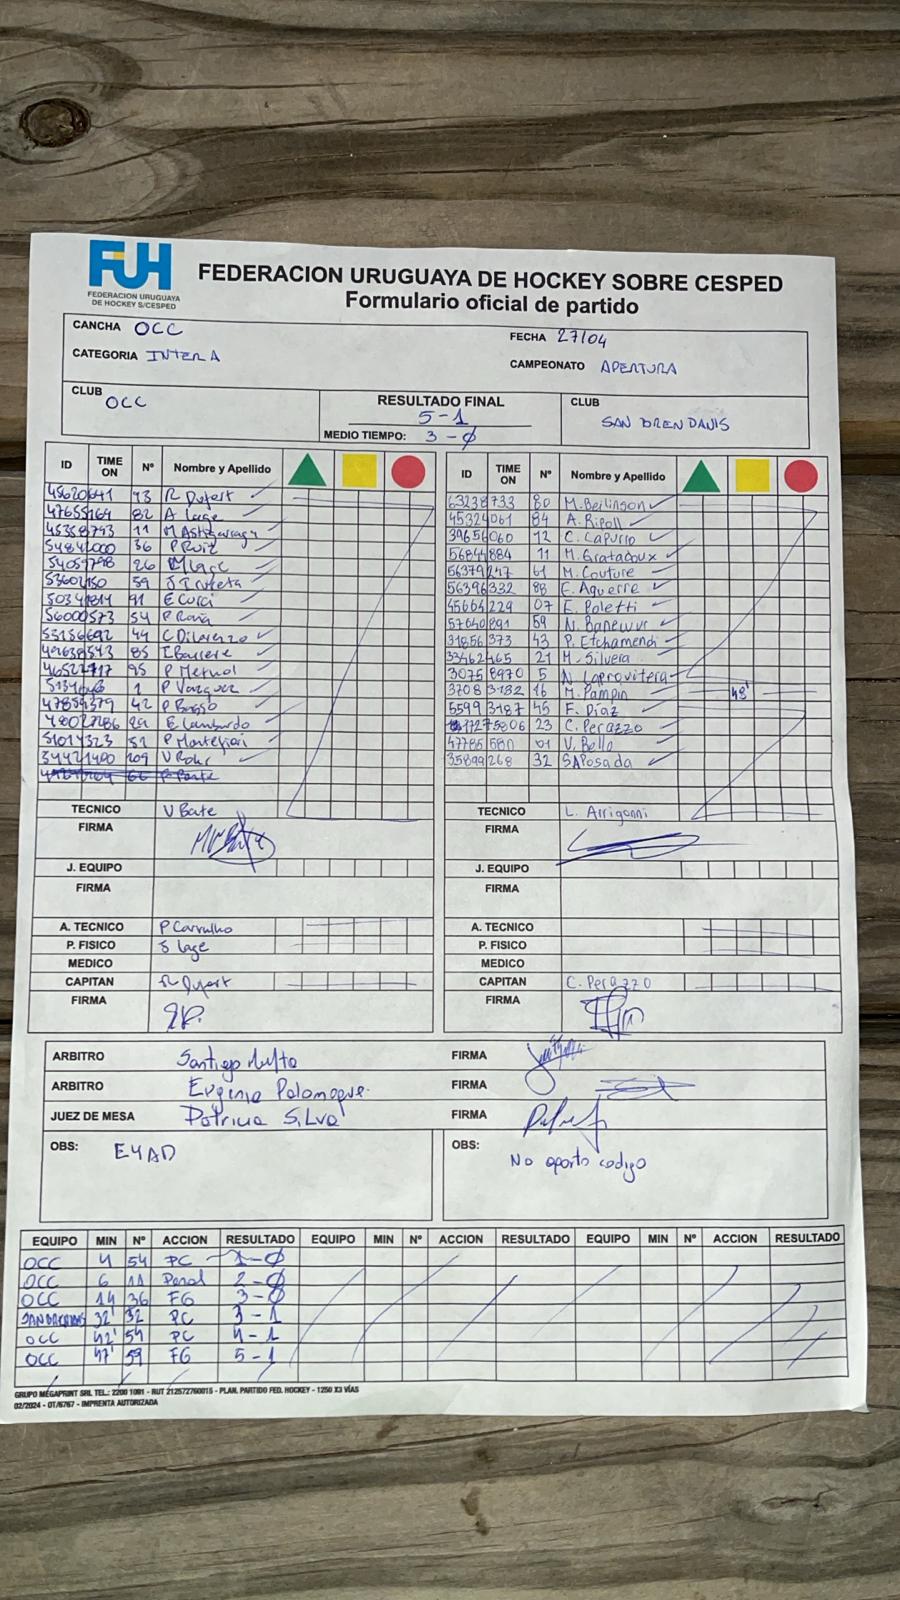 FUH
FEDERACION URUGUAYA
DE HOCKEY S/CESPED
FEDERACION URUGUAYA DE HOCKEY SOBRE CESPED
Formulario oficial de partido
CANCHA OCC
FECHA 27/04
CATEGORIA INTER A
CAMPEONATO APERTURA
CLUB OCC
RESULTADO FINAL
5-1
MEDIO TIEMPO: 3-0
CLUB
SAN BRENDANS
ID TIME ON Nº Nombre y Apellido
R Dufort
82 A Lage
11
54841000 36 P Ruiz
26 M Lage
59
91 E Curci
56000573 54
44 C Dilorenzo
85
95
1 P Vazquez
47859379 42 P Basso
E Lombardo
P Montefiori
34421400
TECNICO V Bate
FIRMA
J. EQUIPO
FIRMA
A. TECNICO P Carvalho
P. FISICO S Lage
MEDICO
CAPITAN R Dufort
FIRMA
ID TIME ON Nº Nombre y Apellido
63238733 80 M. Berlinson
45324061 84 A. Ripoll
39656060 12 C. Capurro
56844884 11 M. Gratadoux
56379247 61 M. Couture
56396332 88 E. Aguerre
45664229 07 E. Poletti
57640891 59
31856373 43 P. Etchamendi
33462465 21 M. Silvera
30758970 5 N. Laprovitera
37083182 16 M. Pampin 48'
55993187 45 F. Diaz
23 C. Perazzo
47785580 01 V. Bello
35899268 32 S Aposada
TECNICO L. Arrigonni
FIRMA
J. EQUIPO
FIRMA
A. TECNICO
P. FISICO
MEDICO
CAPITAN C. Perazzo
FIRMA
ARBITRO Santiago FIRMA
ARBITRO Eugenia Palomeque FIRMA
JUEZ DE MESA Patricia Silva FIRMA
OBS: E4AD
OBS:
No aporto codigo
EQUIPO MIN Nº ACCION RESULTADO EQUIPO MIN Nº ACCION RESULTADO EQUIPO MIN Nº ACCION RESULTADO
OCC 4 54 PC 1-0
OCC 6 11 Penal 2-0
OCC 14 36 FG 3-0
32' 32 PC 3-1
OCC 42' 54 PC 4-1
OCC 47' 59 FG 5-1
GRUPO MEGAPRINT SRL TEL.: 2200 1091 - RUT 212572760015 - PLAN. PARTIDO FED. HOCKEY - 1250 X3 VÍAS
02/2024 - OT/6767 - IMPRENTA AUTORIZADA